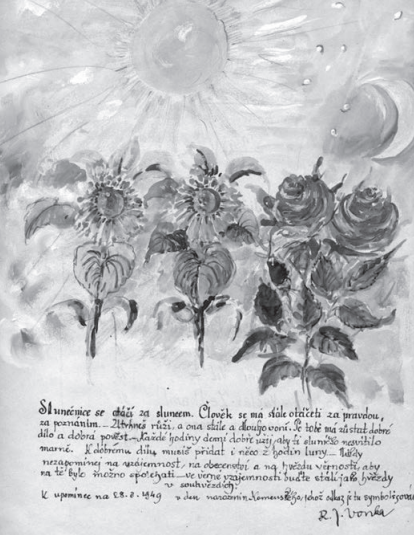 Slunečnice se otáčí za sluncem. Člověk se má stále otáčeti za pravdou,
za poznáním. — Utrhneš růži, a ona stále a dlouho voní. Po tobě má zůstat dobré
dílo a dobrá pověst. Každé hodiny denní dobře užij, aby ti slunéčko nesvítilo
marně. K dobrému dílu musíš přidat i něco z hodin luny. — Nikdy
nezapomínej na vzájemnost, na obecenství a na hvězdu věrnosti, aby
na tě bylo možno spoléhati — ve věrné vzájemnosti buďte stálí jako hvězdy
v souhvězdích.
K upomínce na 28.3.1949 v den narozenin Komenského, jehož odkaz je tu symbolizován
R. J. Vonka